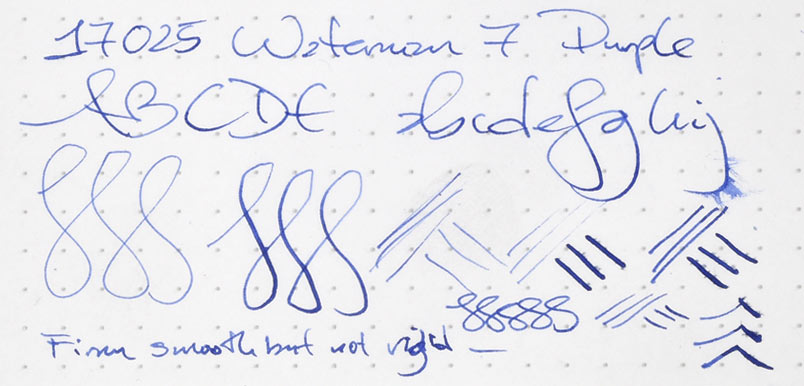 17025 Waterman 7 Purple
ABCDE abcdefghij
Firm smooth but not rigid —